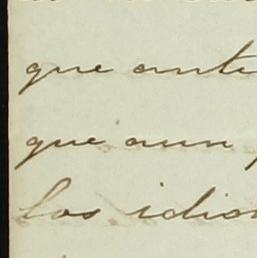 que ante
que aun
los idio